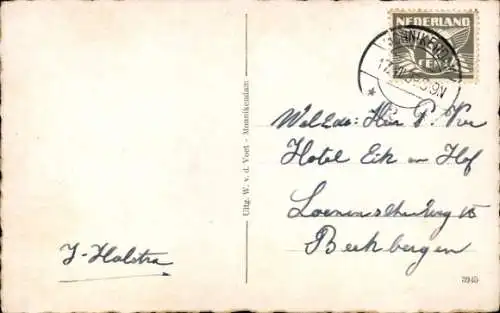 NEDERLAND
CENT
MONNIKENDAM
Uitg. W. v. d. Voet - Monnikendam
WelEdr. Heer P.
Hotel Eik en Hof
Loenenscheweg 15
Beekbergen
J-Halstra